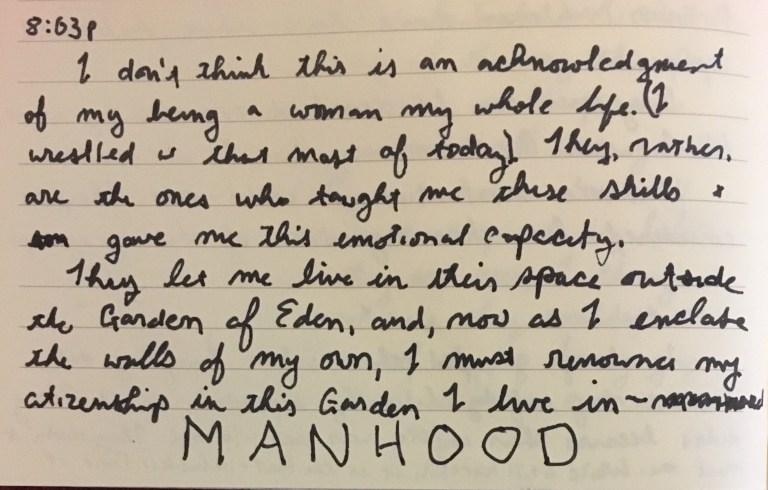 8:03p
I don't think this is an acknowledgment
of my being a woman my whole life. (I
wrestled w that most of today). They, rather,
are the ones who taught me these skills +
gave me this emotional capacity.
They let me live in their space outside
the Garden of Eden, and, now as I enclose
the walls of my own, I must renounce my
citizenship in this Garden I live in -
MANHOOD